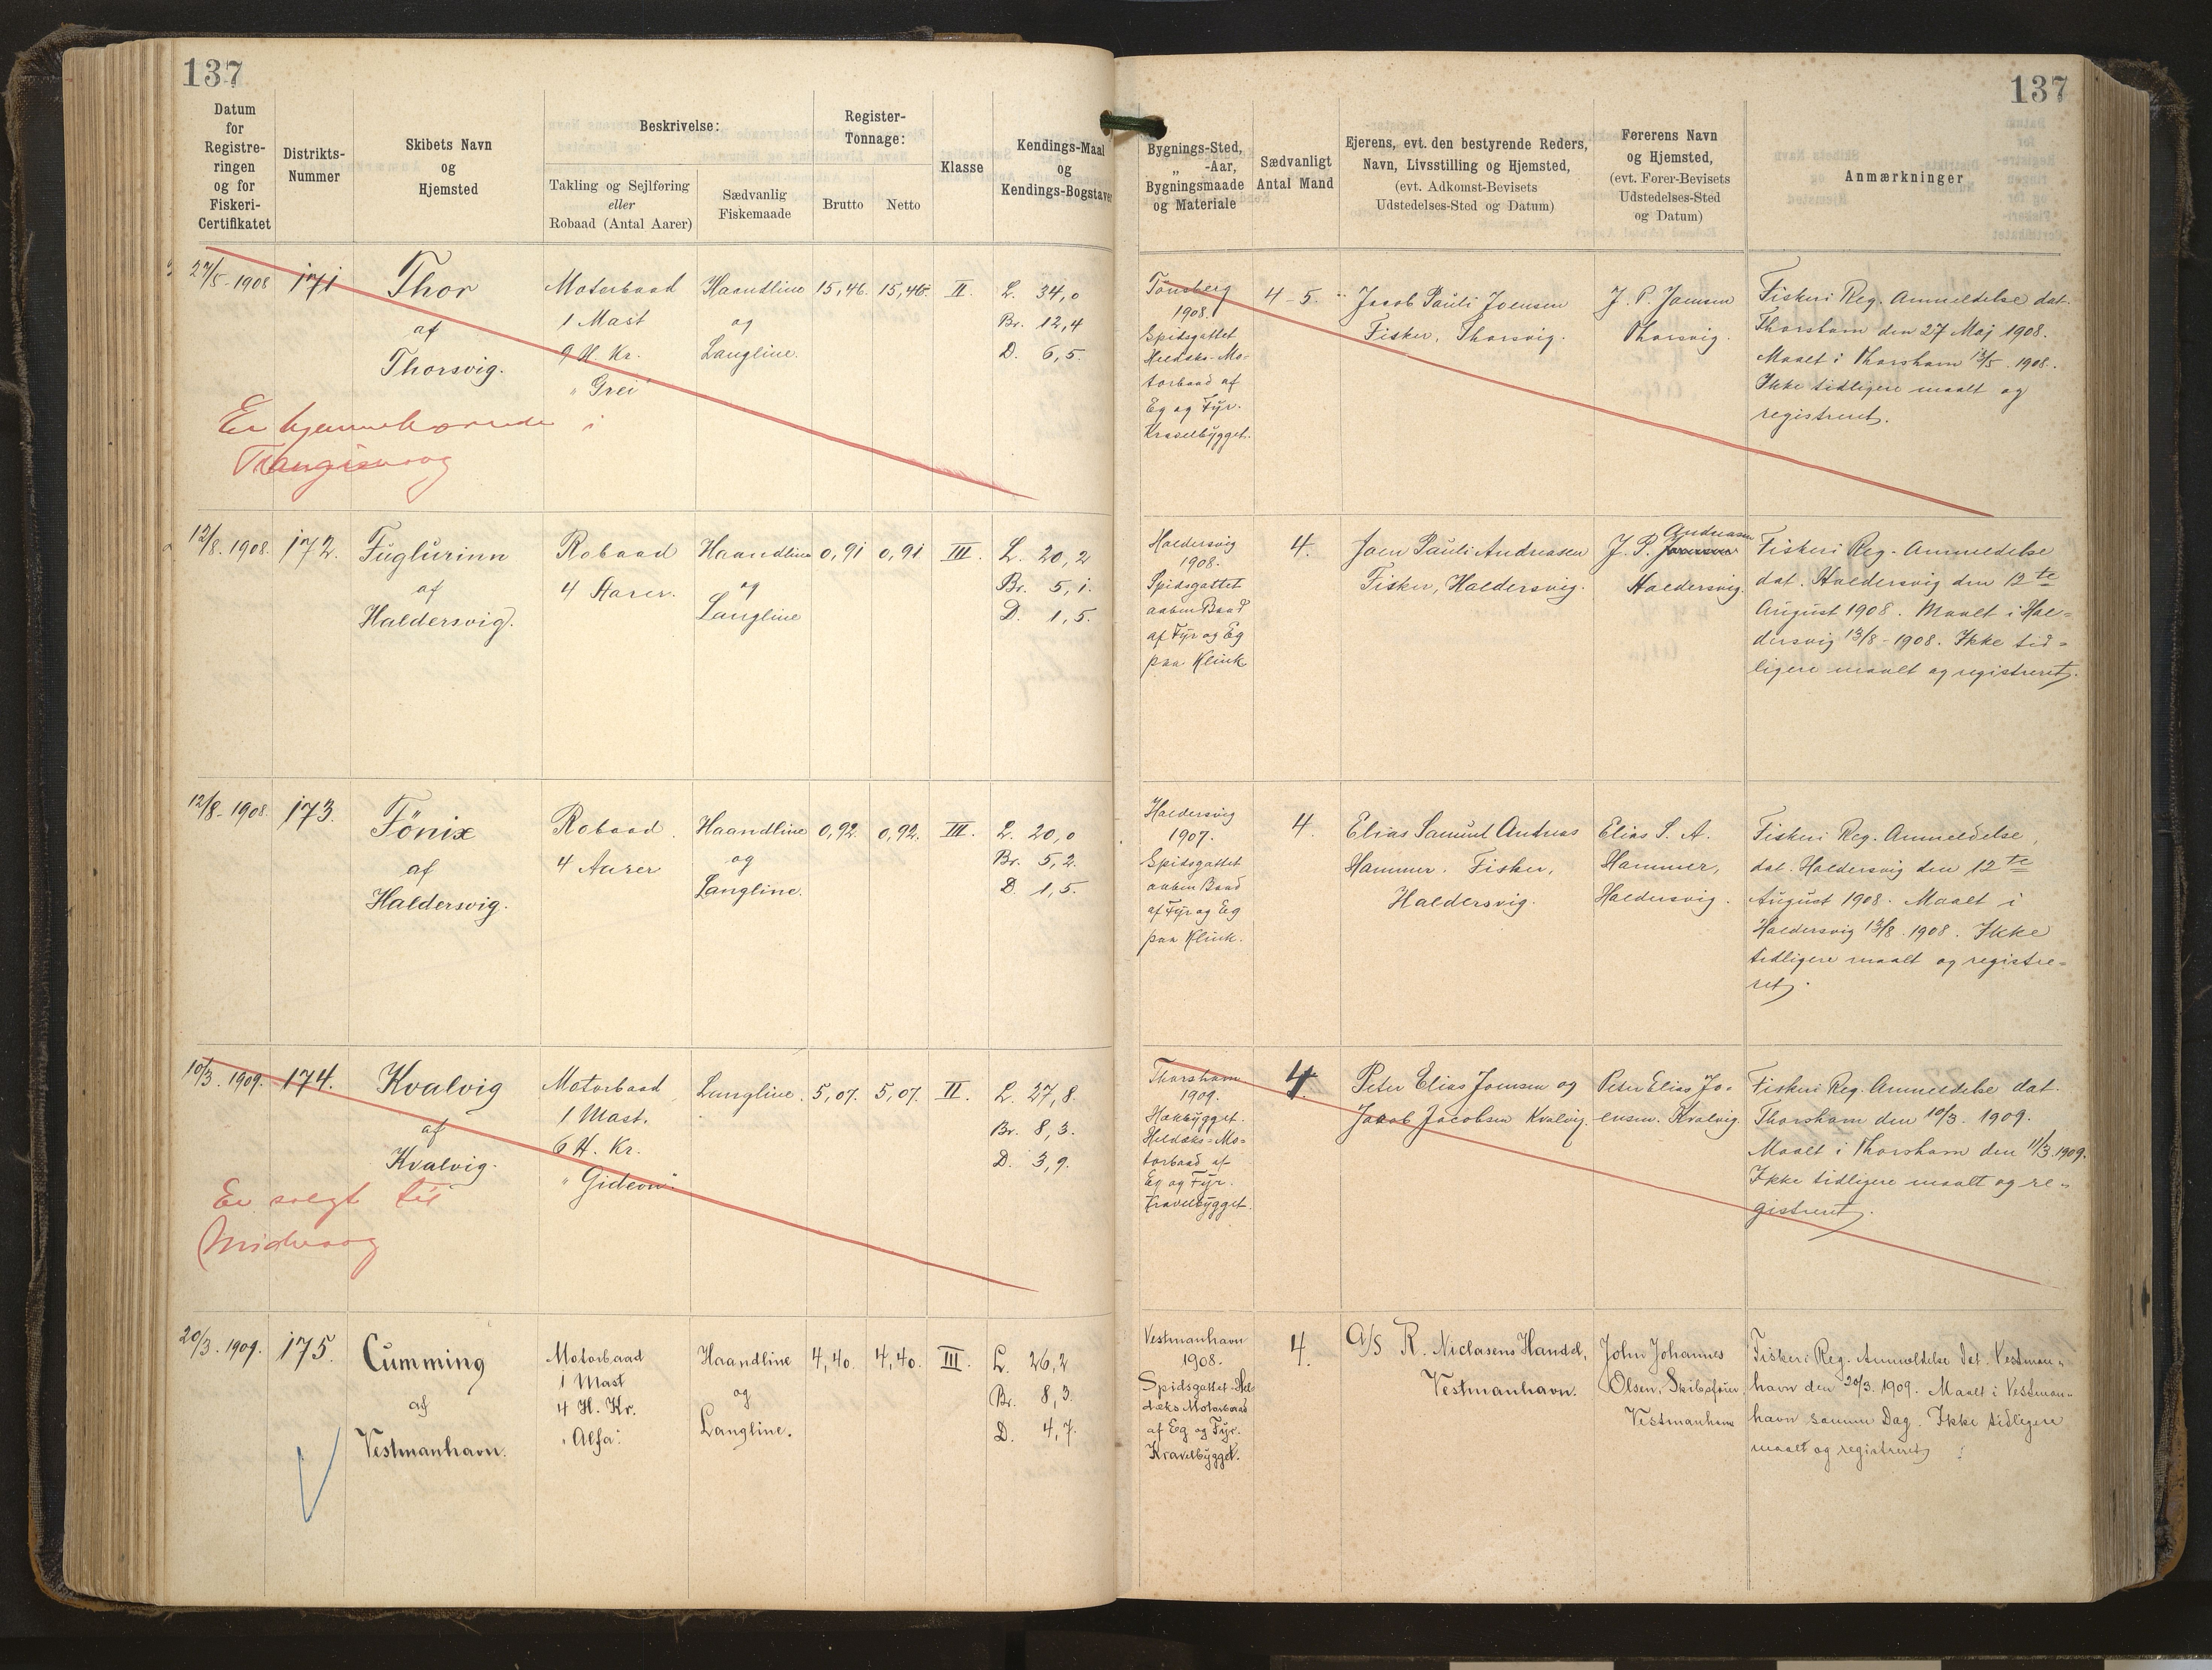 137
137
Datum
for
Registre-
ringen
og for
Fiskeri-
Certifikatet
Distrikts-
Nummer
Skibets Navn
og
Hjemsted
Beskrivelse:
Takling og Sejlføring
eller
Robaad (Antal Aarer)
Sædvanlig
Fiskemaade
Register-
Tonnage:
Brutto
Netto
Klasse
Kendings-Maal
og
Kendings-Bogstaver
Bygnings-Sted,
„ -Aar,
Bygningsmaade
og Materiale
Sædvanligt
Antal Mand
Ejerens, evt. den bestyrende Reders,
Navn, Livsstilling og Hjemsted,
(evt. Adkomst-Bevisets
Udstedelses-Sted og Datum)
Førerens Navn
og Hjemsted,
(evt. Fører-Bevisets
Udstedelses-Sted
og Datum)
Anmærkninger
27/5-1908
171
Thor
af
Thorsvig.
Motorbaad
1 Mast
9 H. Kr.
"Grei"
Haandline
og
Langline.
15,46.
15,46.
II.
L. 34,0
Br. 12,4
D. 6,5.
Er hjemmehørende i
Trangisvaag
Tønsberg
1908.
Spidsgattet
Heldæks-Mo-
torbaad af
Eg og Fyr.
Kravelbygget.
4-5.
Jacob Pauli Joensen
Fisker, Thorsvig.
J. P. Joensen
Thorsvig.
Fiskeri Reg. Anmeldelse dat.
Thorshavn den 27 Maj 1908.
Maalt i Thorshavn 13/5. 1908.
Ikke tidligere maalt og
registreret.
12/8. 1908.
172.
Fuglurinn
af
Haldersvig.
Robaad
4 Aarer.
Haandline
og
Langline
0,91
0,91
III.
L. 20,2
Br. 5,1.
D. 1,5.
Haldersvig
1908.
Spidsgattet
aaben Baad
af Fyr og Eg
paa Klink
4.
Joen Pauli Andreasen
Fisker, Haldersvig.
Andreasen
J. P. Joensen
Haldersvig.
Fiskeri Reg. Anmeldelse
dat. Haldersvig den 12te
August 1908. Maalt i Hal=
dersvig 13/8-1908. Ikke tid=
ligere maalt og registreret.
12/8-1908.
173.
Fönix
af
Haldersvig.
Robaad.
4 Aarer
Haandline
og
Langline.
0,92.
0,92.
III.
L. 20,0
Br. 5,2.
D. 1,5.
Haldersvig
1907.
Spidsgattet
aaben Baad
af Fyr og Eg
paa Klink.
4.
Elias Samuel Andreas
Hammer. Fisker,
Haldersvig.
Elias S. A.
Hammer,
Haldersvig.
Fiskeri Reg. Anmeldelse,
dat. Haldersvig den 12te
August 1908. Maalt i
Haldersvig 13/8. 1908. Ikke
tidligere maalt og registre=
ret.
10/3. 1909.
174.
Kvalvig
af
Kvalvig.
Motorbaad
1 Mast.
6 H. Kr.
"Gideon".
Langline.
5,07.
5,07.
II.
L. 27,8.
Br. 8,3.
D. 3,9.
Er solgt til
Midvaag
Thorshavn
1909.
Hækbygget.
Heldæks=Mo=
torbaad af
Eg og Fyr.
Kravelbygget.
4.
Peter Elias Joensen og
Jacob Jacobsen Kvalvig.
Peter Elias Jo=
ensen. Kvalvig.
Fiskeri Reg. Anmeldelse dat.
Thorshavn den 10/3. 1909.
Maalt i Thorshavn den 11/3. 1909.
Ikke tidligere maalt og re=
gistreret.
20/3. 1909.
175.
Cumming
af
Vestmanhavn.
Motorbaad
1 Mast
4 H. Kr.
"Alfa".
Haandline
og
Langline.
4,40.
4,40.
III.
L. 26,2
Br. 8,3.
D. 4,7.
Vestmanhavn
1908.
Spidsgattet Hel=
dæks Motorbaad
af Eg og Fyr.
Kravelbygget.
4.
A/S R. Niclasens Handel,
Vestmanhavn.
John Johannes
Olsen, Skibsfører,
Vestmanhavn
Fiskeri Reg. Anmeldelse dat. Vestman=
havn den 20/3. 1909. Maalt i Vestman=
havn samme Dag. Ikke tidligere
maalt og registreret.